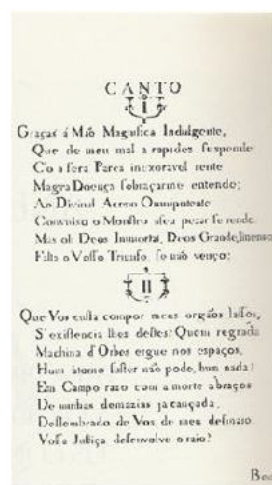 CANTO
I
Graças á Mão Magnifica Indulgente,
Que de meu mal a rapidez suspende
Co a fera Parca inexoravel rente
Magra Doença sobraçarme entende;
Ao Divinal Aceno Omnipotente
Convulso o Monstro a seu pezar se rende.
Mas oh Deos Immortal, Deos Grande, Immenso
Falta o Vosso Triunfo, se não venço;
II
Que Vos custa compor meus orgãos lassos,
S'existencia lhes destes? Quem regrada
Machina d'Orbes ergue nos espaços,
Hum atomo suster não pode, hum nada?
Em Campo razo com a morte a braços
De minhas demazias já cançada,
Deslembrado de Vos de meu destino
Vossa Justiça desenvolve o raio?